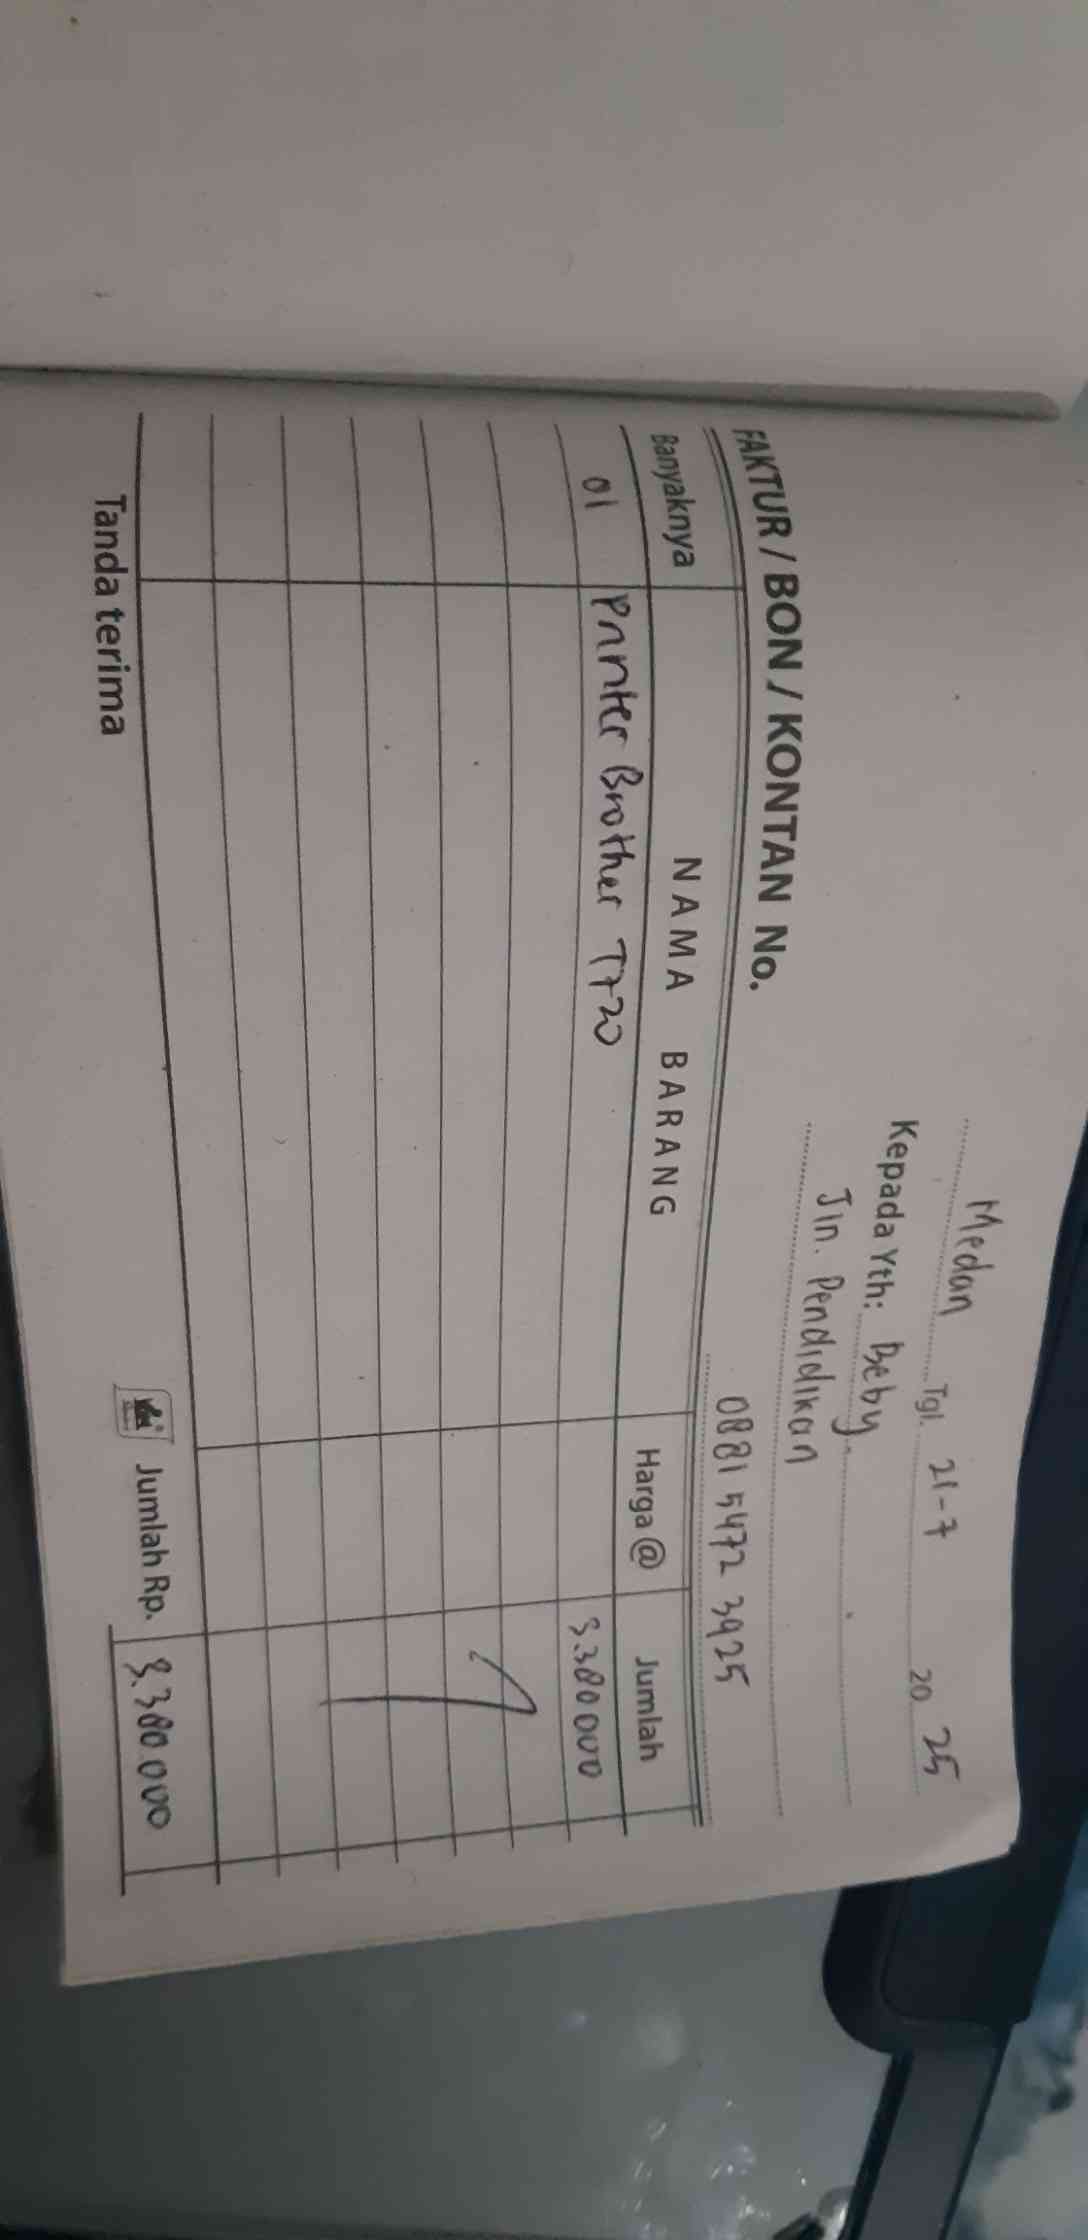 Medan Tgl. 21-7 20 25
Kepada Yth: Beby
Jln. Pendidikan
0881 5472 3925
FAKTUR / BON / KONTAN No.
Banyaknya NAMA BARANG Harga @ Jumlah
01 Printer Brother T720 3.380 000
Tanda terima Jumlah Rp. 3.380 000